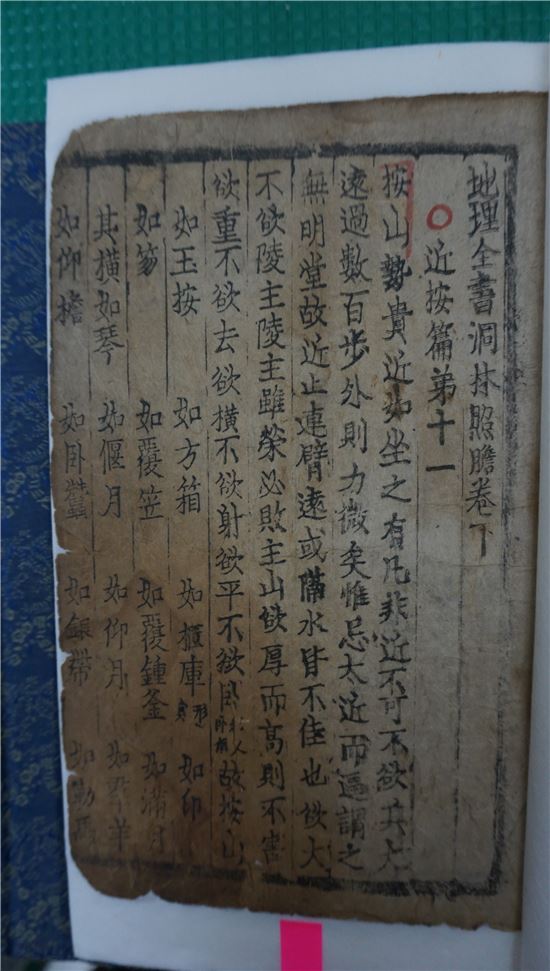 地理全書洞林照膽卷下
○近按篇第十一
按山勢貴近如坐之有几非近不可不欲其太
遠過數百步外則力微矣惟忌太近而逼謂之
無明堂故近止連臂遠或隔水皆不佳也欲大
不欲陵主陵主雖榮必敗主山欲厚而高則不害
欲重不欲去欲橫不欲射欲平不欲臥故按山
如玉按 如方箱 如櫃庫 如印
如笏 如覆笠 如覆鍾釜 如滿月
其橫如琴 如偃月 如仰月 如羣羊
如仰檐 如臥蠶 如銀帶